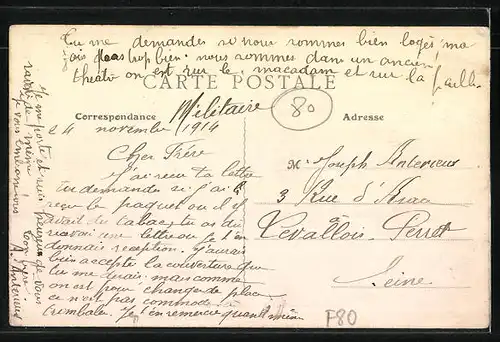 Tu me demandes si nous sommes bien logés ma
ois pas trop bien nous sommes dans un ancien
theatr on est sur le macadam et sur la paille
CARTE POSTALE
Militaire
80
Correspondance
Adresse
le 4 novembre 1914
Cher Frère
J'ai reçu ta lettre
tu demandes si j'ai
reçu le paquet ou il y
avait du tabac, tu as du
recevoir une lettre ou je t'en
donnais reception. J'aurais
bien accepté la couverture que
tu me disais mais comme
on est pour changer de place
ce n'est pas commode
trimbaler. Je t'en remercie quand même
Je me porte et suis
de vous
savoir de même
Je vous embrasse tous
Ton frère
A. Anterieux
M. Joseph Anterieux
3 Rue d'
à
Levallois-Perret
Seine
F80